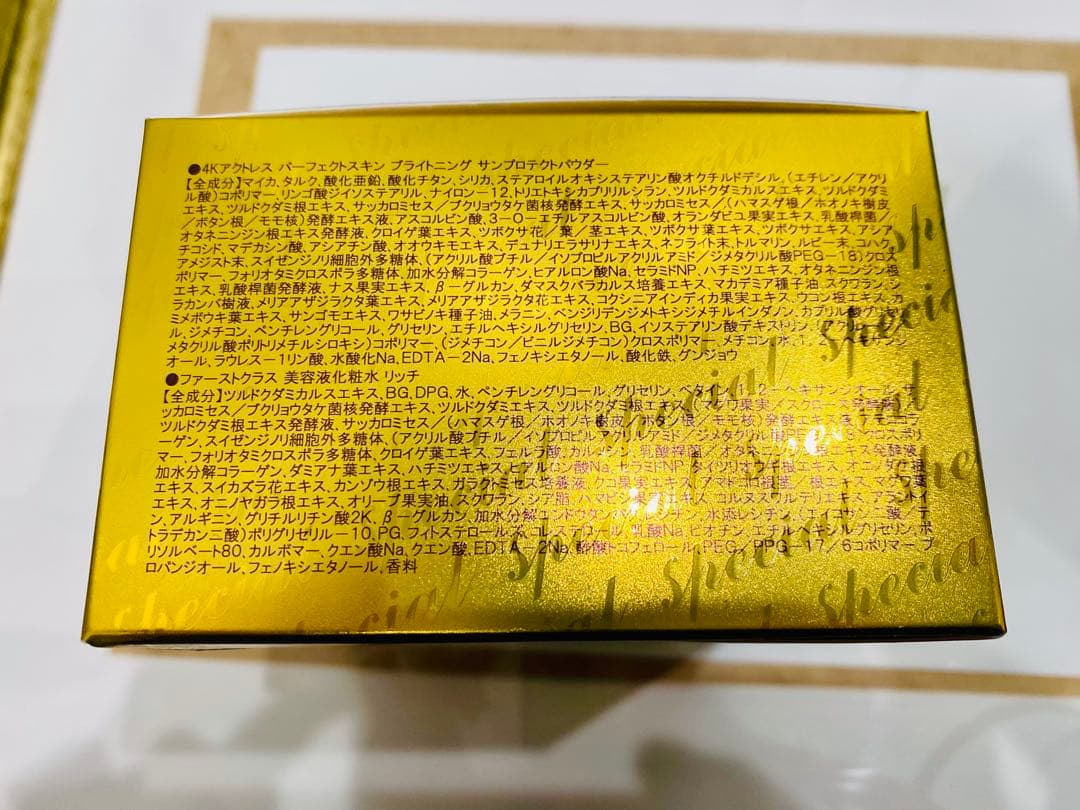 ●4Kアクトレス パーフェクトスキン ブライトニング サンプロテクトパウダー
【全成分】マイカ,タルク,酸化亜鉛,酸化チタン,シリカ,ステアロイルオキシステアリン酸オクチルドデシル,(エチレン/アクリ
ル酸)コポリマー,リンゴ酸ジイソステアリル,ナイロン-12,トリエトキシカプリリルシラン,ツルドクダミカルスエキス,ツルドクダミ
エキス,ツルドクダミ根エキス,サッカロミセス/ブクリョウタケ菌核発酵エキス,サッカロミセス/(ハマスゲ根/ホオノキ樹皮
/ボタン根/モモ核)発酵エキス液,アスコルビン酸,3-O-エチルアスコルビン酸,オランダビユ果実エキス,乳酸桿菌/
オタネニンジン根エキス発酵液,クロイゲ葉エキス,ツボクサ花/葉/茎エキス,ツボクサ葉エキス,ツボクサエキス,アシア
チコシド,マデカシン酸,アシアチン酸,オオウキモエキス,デュナリエラサリナエキス,ネフライト末,トルマリン,ルビー末,コハク,
アメジスト末,スイゼンジノリ細胞外多糖体,(アクリル酸ブチル/イソプロピルアクリルアミド/ジメタクリル酸PEG-18)クロス
ポリマー,フォリオタミクロスポラ多糖体,加水分解コラーゲン,ヒアルロン酸Na,セラミドNP,ハチミツエキス,オタネニンジン根
エキス,乳酸桿菌発酵液,ナス果実エキス,β-グルカン,ダマスクバラカルス培養エキス,マカデミア種子油,スクワラン,シ
ラカンバ樹液,メリアアザジラクタ葉エキス,メリアアザジラクタ花エキス,コクシニアインディカ果実エキス,ウコン根エキス,カ
ミメボウキ葉エキス,サンゴモエキス,ワサビノキ種子油,メラニン,ベンジリデンジメトキシジメチルインダノン,カプリル酸グリセリ
ル,ジメチコン,ペンチレングリコール,グリセリン,エチルヘキシルグリセリン,BG,イソステアリン酸デキストリン,
メタクリル酸ポリトリメチルシロキシ)コポリマー,(ジメチコン/ビニルジメチコン)クロスポリマー,メチコン,水,1,2-ヘキサンジ
オール,ラウレス-1リン酸,水酸化Na,EDTA-2Na,フェノキシエタノール,酸化鉄,グンジョウ
●ファーストクラス 美容液化粧水 リッチ
【全成分】ツルドクダミカルスエキス,BG,DPG,水,ペンチレングリコール,グリセリン,ベタイン,1,2-ヘキサンジオール,サ
ッカロミセス/ブクリョウタケ菌核発酵エキス,ツルドクダミエキス,ツルドクダミ根エキス,
ツルドクダミ根エキス発酵液,サッカロミセス/(ハマスゲ根/ホオノキ樹皮/ボタン根/モモ核)発酵エキス液,
ーゲン,スイゼンジノリ細胞外多糖体,(アクリル酸ブチル/イソプロピルアクリルアミド/ジメタクリル酸PEG-18)クロスポリ
マー,フォリオタミクロスポラ多糖体,クロイゲ葉エキス,フェルラ酸,カルニシン,乳酸桿菌/オタネニンジン根エキス発酵液,
加水分解コラーゲン,ダミアナ葉エキス,ハチミツエキス,ヒアルロン酸Na,セラミドNP,タイツリオウギ根エキス,
エキス,スイカズラ花エキス,カンゾウ根エキス,ガラクトミセス培養液,クコ果実エキス,アマドコロ根茎/根エキス,マグワ葉
エキス,オニノヤガラ根エキス,オリーブ果実油,スクワラン,シア脂,コルヌスクルテリエキス,アラントイ
ン,アルギニン,グリチルリチン酸2K,β-グルカン,加水分解エンドウタンパク,水添レシチン,(エイコサン二酸/テ
トラデカン二酸)ポリグリセリル-10,PG,フィトステロールズ,コレステロール,乳酸Na,ビオチン,エチルヘキシルグリセリン,ポ
リソルベート80,カルボマー,クエン酸Na,クエン酸,EDTA-2Na,酢酸トコフェロール,PEG/PPG-17/6コポリマー,プ
ロパンジオール,フェノキシエタノール,香料